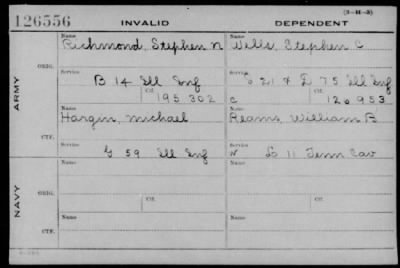 (3-14-3)
126556 INVALID DEPENDENT
Name Name
Richmond, Stephen N Wells, Stephen C
ORIG.
Service Service
B 14 Ill Inf C 21 & D 75 Ill Inf
Ctf. Ctf.
195 302 C 120 953
ARMY
Name Name
Hargin, Michael Reams, William B
CTF.
Service Service
G 59 Ill Inf W L 11 Tenn Cav
Name Name
ORIG.
Ctf. Ctf.
NAVY
Name Name
CTF.